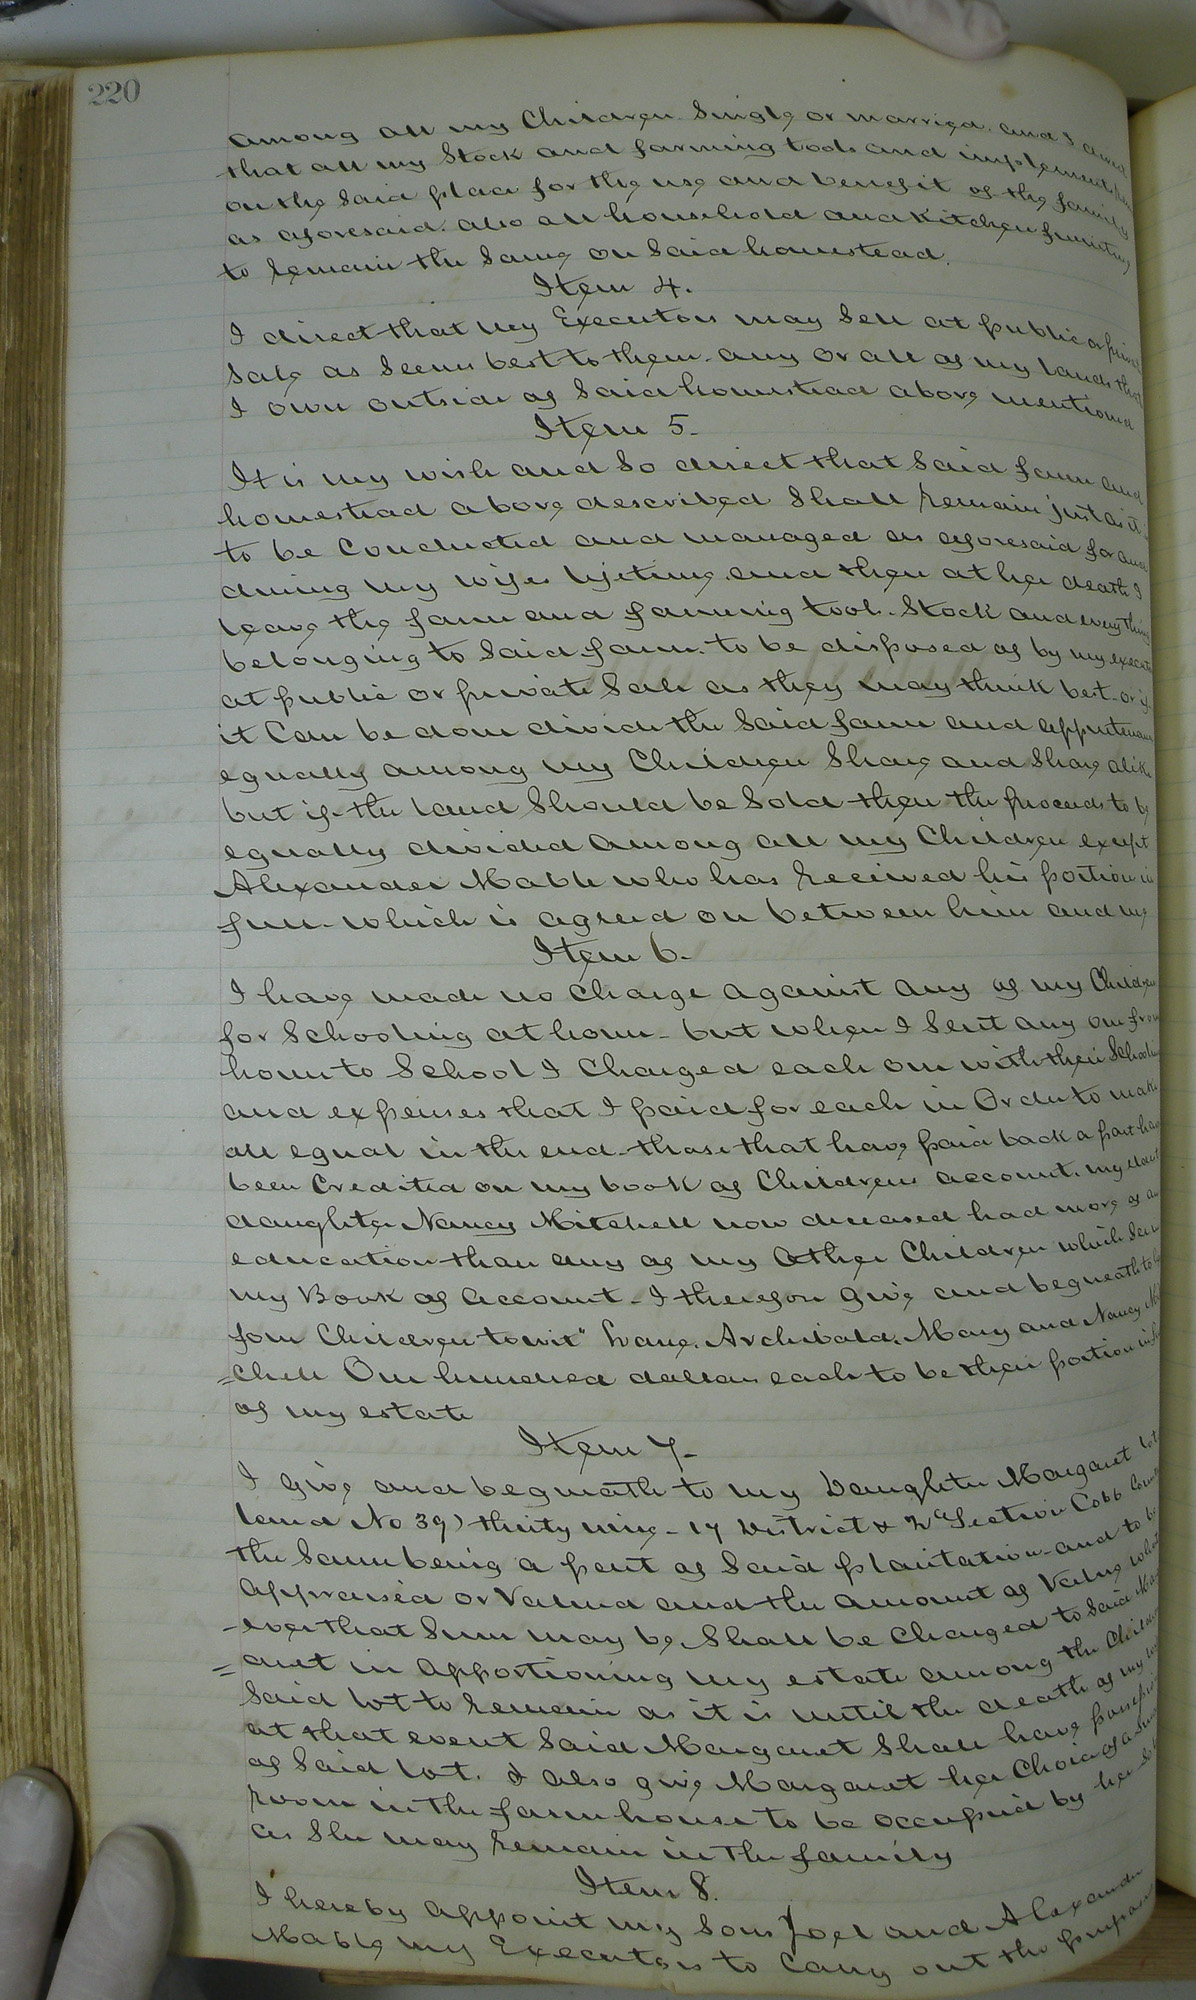 220
among all my Children Single or married. and I direct
that all my Stock and farming tools and implements
on the Said place for the use and benefit of the family
as aforesaid. also all household and Kitchen
to remain the Same on Said homestead.
Item 4.
I direct that my Executors may Sell at public or
Sale as Seems best to them. any or all of my lands that
I own outside of Said homestead above mentioned
Item 5.
It is my wish and So direct that Said farm and
homestead above described Shall remain just as it
to be Conducted and managed as aforesaid for and
during my wifes lifetime. and then at her death I
leave the farm and farming tools. Stock and everything
belonging to Said farm. to be disposed of by my
at public or private Sale as they may think best - or if
it Can be done divide the Said farm and
equally among my Children Share and Share alike
but if the land Should be Sold then the proceeds to be
equally divided among all my Children except
Alexander Mable who has received his portion in
full - which is agreed on between him and my
Item 6.
I have made no Charge against any of my
for Schooling at home - but when I Sent any one from
home to School I Charged each one with their
and expenses that I paid for each in Order to make
all equal in the end - those that have paid back a part have
been Credited on my book of Childrens account. my
daughter Nancy Mitchell now deceased had more of an
education than any of my Other Children which
my Book of account - I therefore Give and bequeath to
four Children towit" Lane. Archibald. Mary and Nancy
=chell One hundred dollars each to be their portion
of my estate
Item 7-
I Give and bequeath to my Daughter Margaret lot
land No 39) thirty nine - 17 District & 2d Section Cobb
the Same being a part of Said plantation - and to be
appraised or Valued and the amount of Value what
-ever that Sum may be, Shall be Charged to Said
=aret in apportioning my estate among the
Said lot to remain as it is until the death of my
at that event Said Margaret Shall have
of Said lot. I also give Margaret her Choice of a
room in the farm house to be occupied by her
as She may remain in the family
Item 8.
I hereby appoint my Sons Joel and Alexander
Mable my Executors to Carry out the